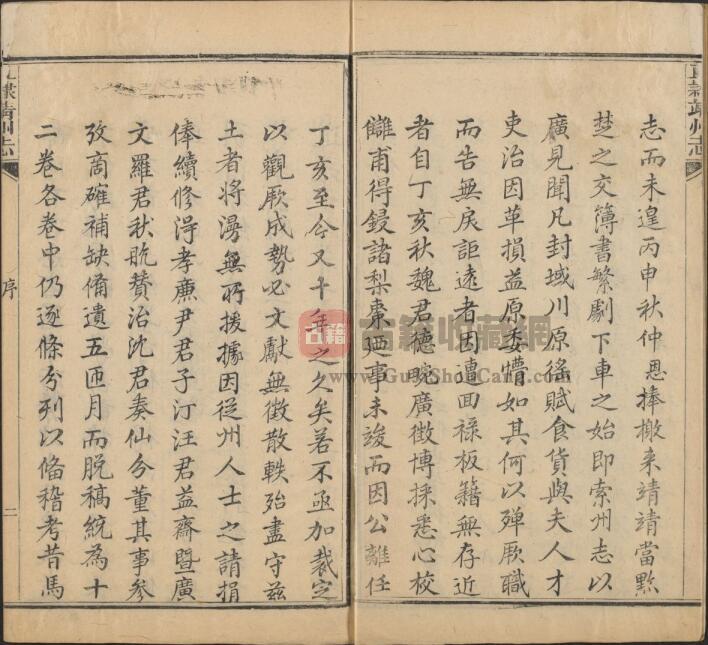 直隸靖州志
志而未遑丙申秋仲恩捧檄来靖靖當黔
楚之交簿書繁劇下車之始即索州志以
廣見聞凡封域川原徭賦食貨與夫人才
吏治因革損益原委懵如其何以殫厥職
而告無戾詎遠者因遭回祿板籍無存近
者自丁亥秋魏君德畹廣徵博採悉心校
讎甫得鋟諸梨棗廼事未竣而因公離任
丁亥至今又十年之久矣若不亟加裁定
以觀厥成勢必文獻無徵散軼殆盡守兹
土者将漫無所援據因從州人士之請捐
俸續修淂孝廉尹君子汀汪君益齋暨廣
文羅君秋畝賛治沈君奏仙分董其事參
攷商確補缺俻遺五匝月而脱稿統為十
二卷各卷中仍逐條分列以俻稽考昔馬
隸靖州志
序
二
古籍
古籍收藏網
www.GuJiShouCang.com